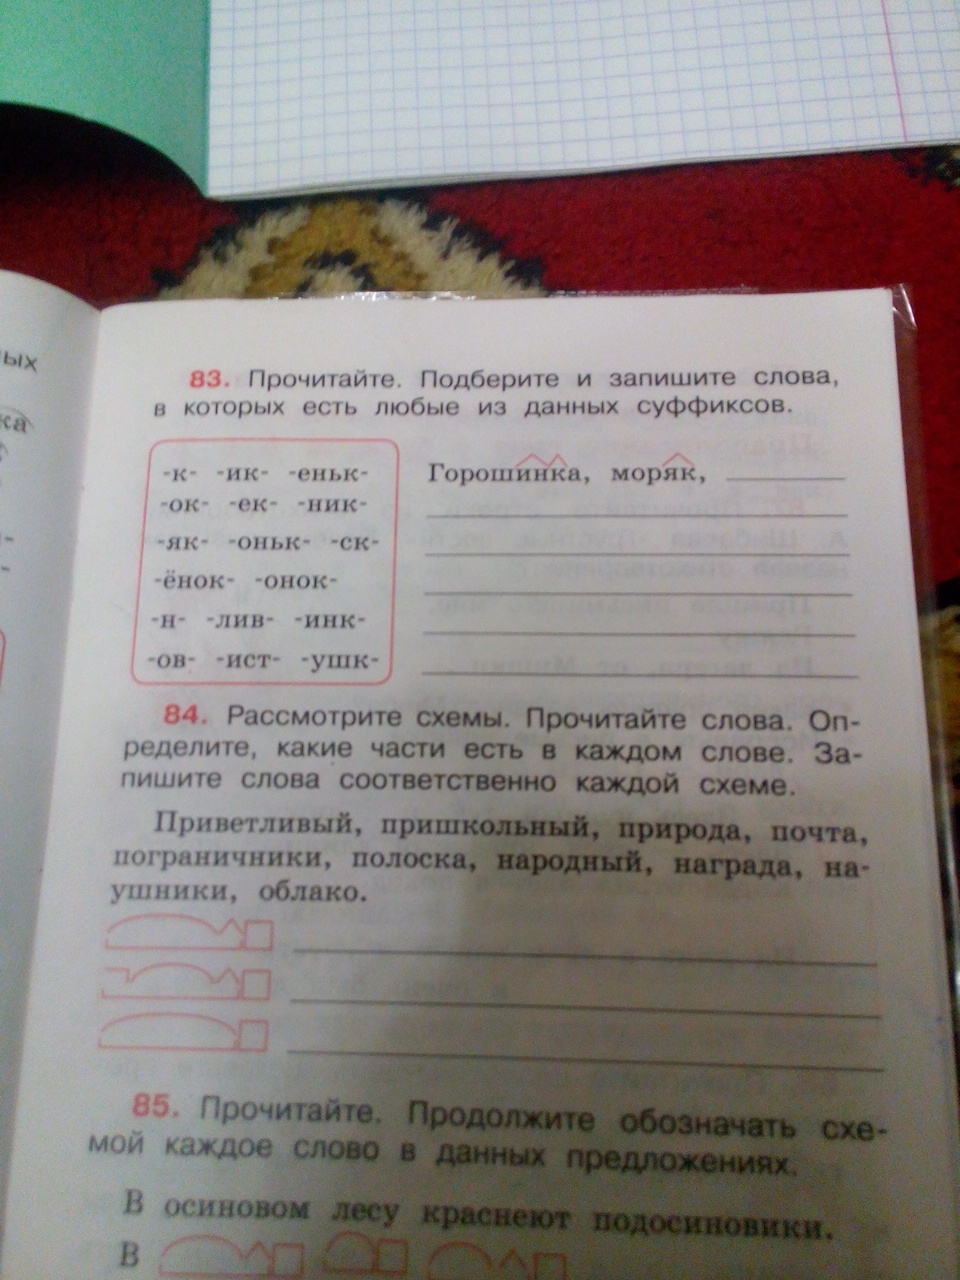 ых
ка
83. Прочитайте. Подберите и запишите слова,
в которых есть любые из данных суффиксов.
-к- -ик- -еньк-
-ок- -ек- -ник-
-як- -оньк- -ск-
-ёнок- -онок-
-н- -лив- -инк-
-ов- -ист- -ушк-
Горошинка, моряк,
84. Рассмотрите схемы. Прочитайте слова. Оп-
ределите, какие части есть в каждом слове. За-
пишите слова соответственно каждой схеме.
Приветливый, пришкольный, природа, почта,
пограничники, полоска, народный, награда, на-
ушники, облако.
85. Прочитайте. Продолжите обозначать схе-
мой каждое слово в данных предложениях.
В осиновом лесу краснеют подосиновики.
В